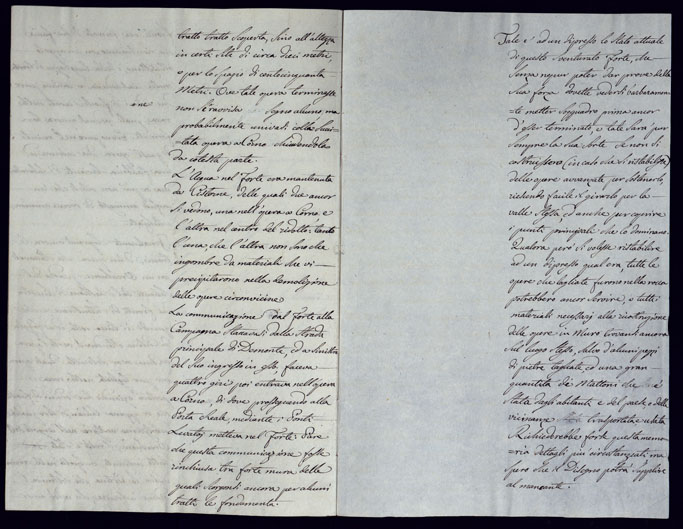 tratto tratto scoperta, sino all'altezza
in certi siti di circa dieci metri,
e per lo spazio di centocinquanta
Metri. Ove tale opera terminasse
non si ravvisa segno alcuno, ma
probabilmente univasi colla suci-
tata opera a Corno chiudendola
da cotesta parte.
L'Acqua nel Forte era mantenuta
da Cisterne, delle quali due ancor
si vedono, una nell'opera a Corno e
l'altra nel centro del ridotto: tanto
l'una, che l'altra non sono che
ingombre da materiali che vi
precipitarono nella demolizione
delle opere circonvicine
La communicazione dal Forte alla
Campagna staccavasi dalla strada
principale di Demonte, ed a sinistra
del suo ingresso in esso, faceva
quattro giri poi entrava nell'opera
a Corno, di dove proseguendo alla
Porta Reale, mediante Ponti
Levatoj metteva nel Forte. Pare
che questa communicazione fosse
rinchiusa tra forte mura delle
quali scorgonsi ancora per alcuni
tratti le fondamenta.
Tale è ad un dipresso lo Stato attuale
di questo sventurato Forte, che
senza nepur poter dar prove della
sua forza dovette vedersi barbaramen-
te metter soqquadro prima ancor
d'esser terminato, e tale sarà pur
sempre la sua sorte se non si
costruissero (in caso che si ristabilisse)
delle opere avanzate per sostenerlo,
riescendo facile il girarlo per la
valle stessa, ed anche per coprire
i punti principali che lo dominano.
Qualora però si volesse ristabilire
ad un dipresso qual era, tutte le
opere che tagliate furono nella rocca
potrebbero ancor servire, e tutti i
materiali necessarj alla ricostruzione
delle opere in Muro trovansi ancora
sul luogo stesso, salvo d'alcuni pezzi
di pietre tagliate, ed una gran
quantità de' Mattoni che è
stata dagli abitanti e del paese e delle
vicinanze trasportata e venduta
Richiederebbe forse questa memo-
ria dettagli più circostanziati ma
spero che il Disegno potrà supplire
al mancante.